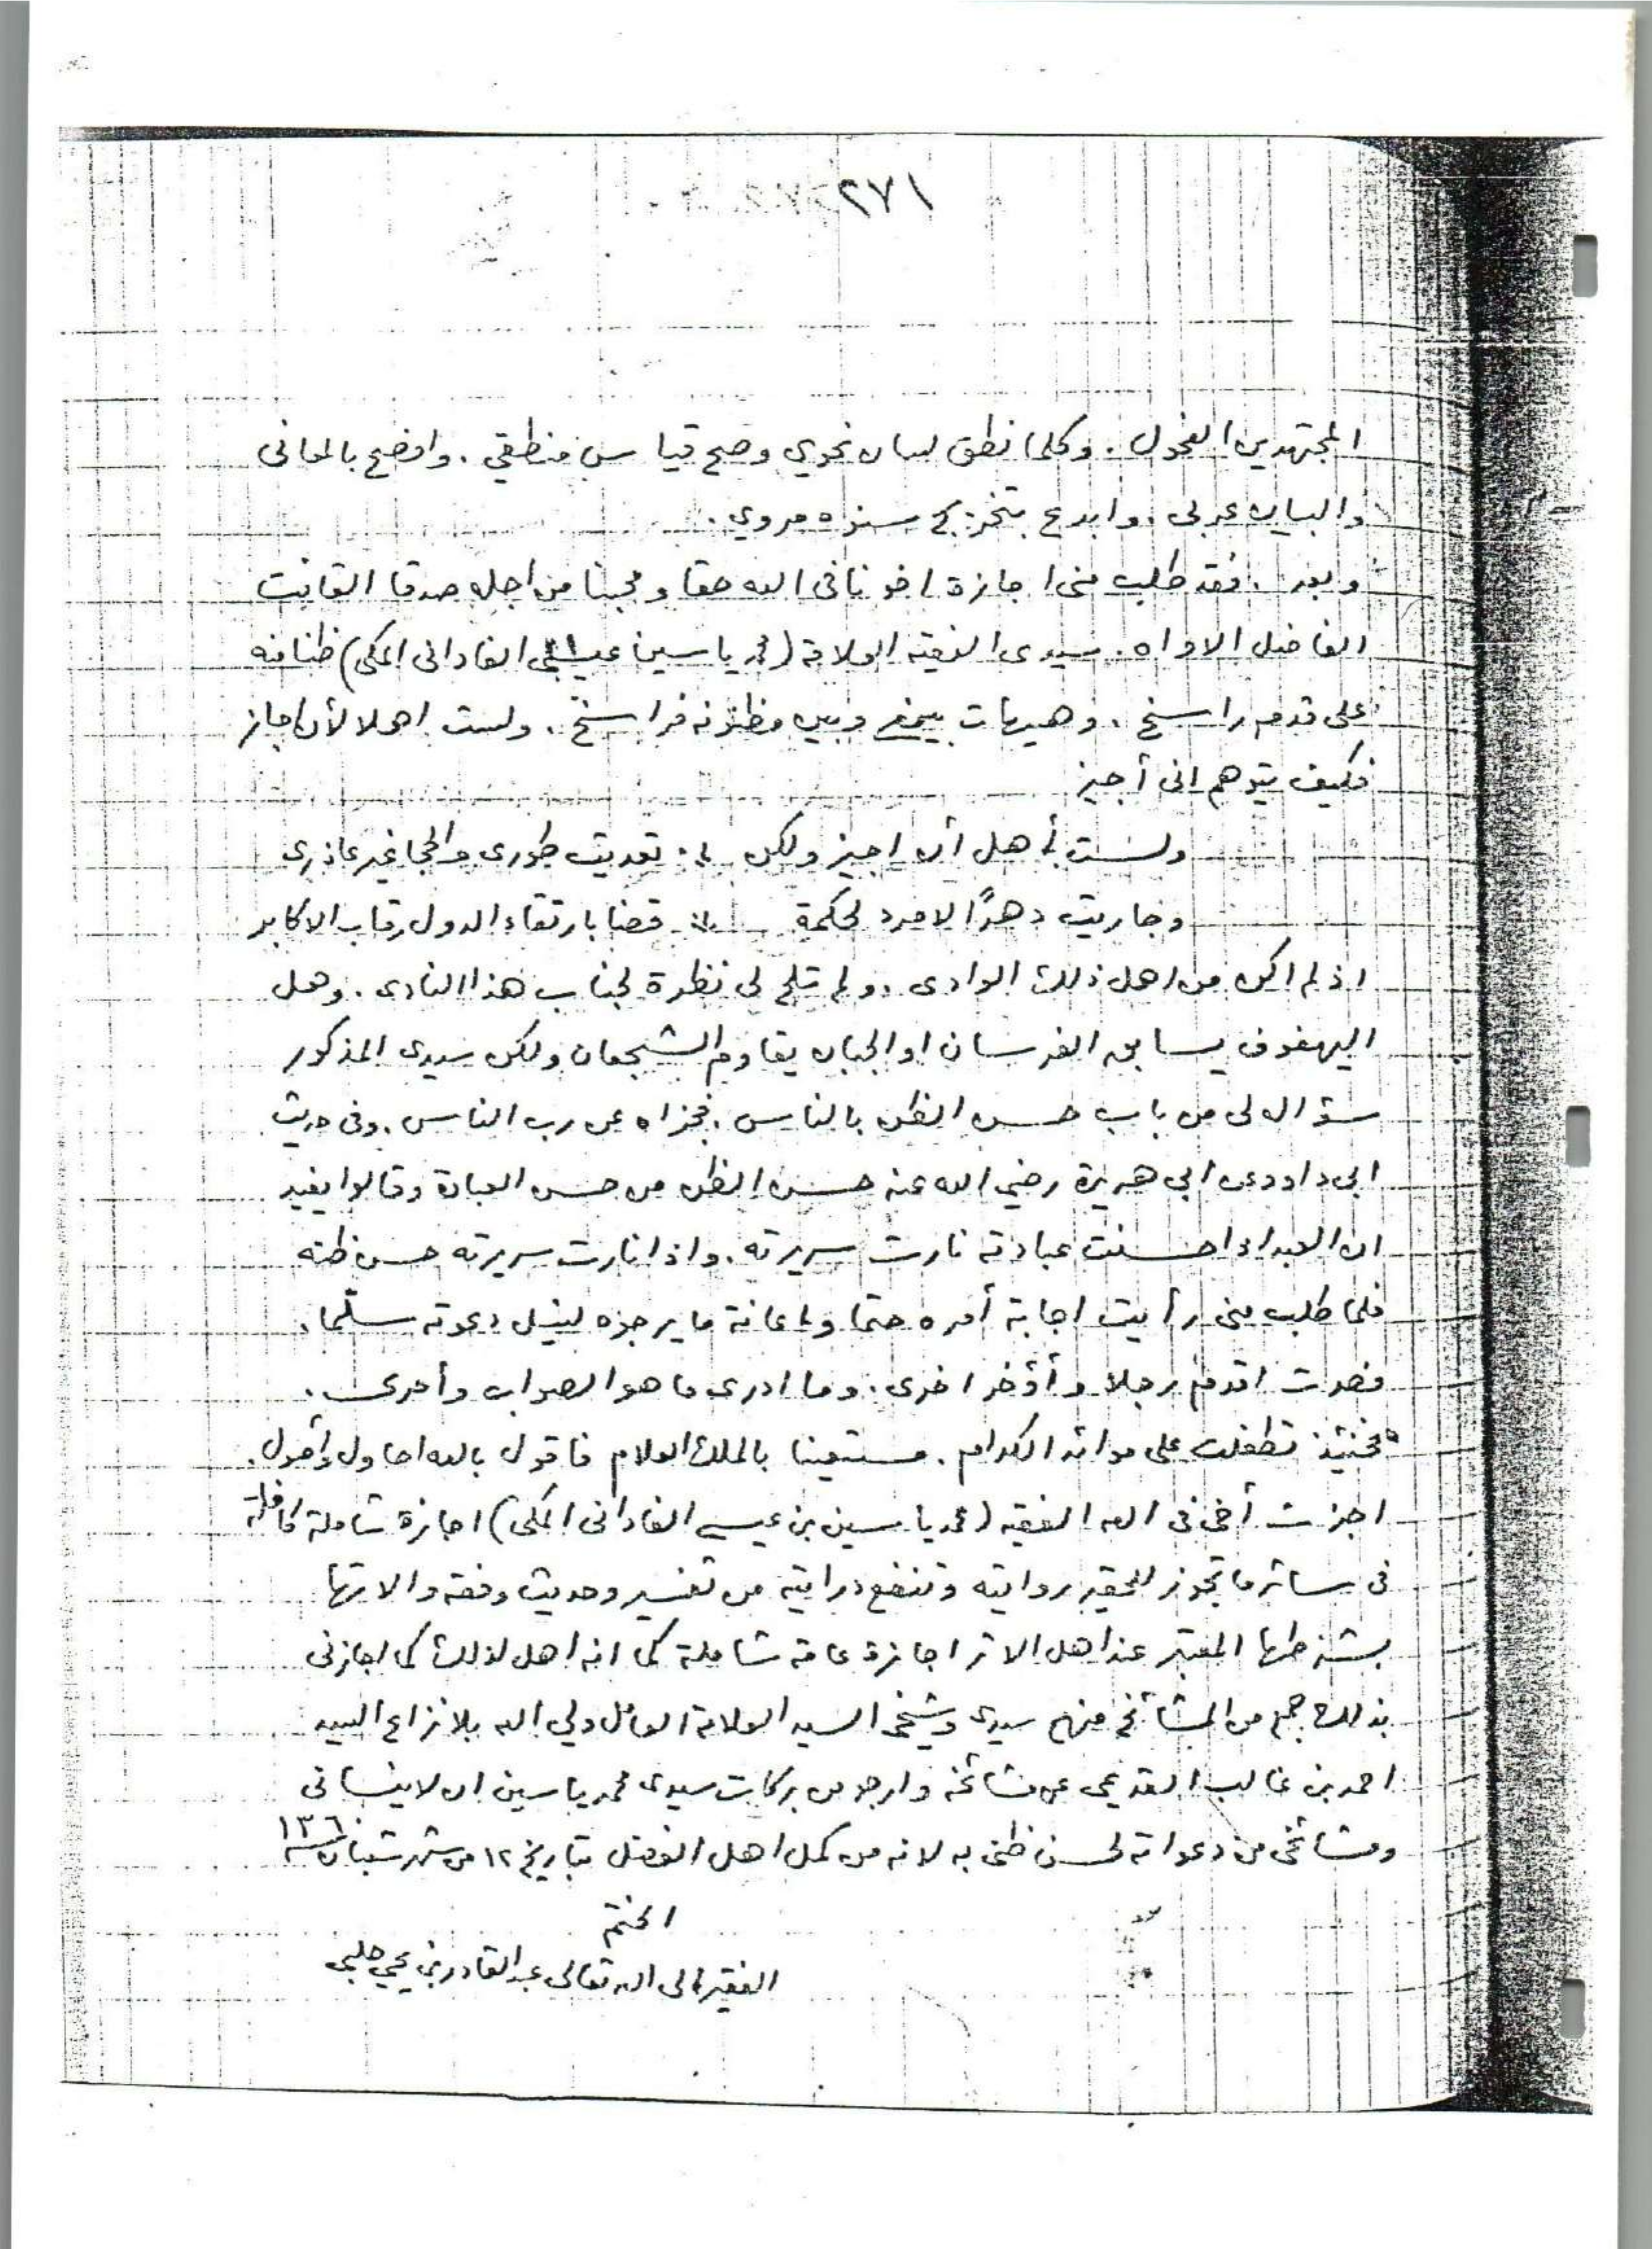 ٢٧١
المجتهدين الفحول . وكلما نطق لسان نحوي وصح قياس منطقي . وافصح بالمعانى
والبيان عربي . وابدع بتخريج سنده مروي .
وبعد . فقد طلب منى اجازة اخونا فى الله حقا ومحبنا من اجله صدقا القانت
الفاضل الاواه . سيدى الفقيه العلامة (محمد ياسين عيسى الفادانى المكى) ظنا منه
على قدم راسخ . وهيهات بينى وبين مظنونه فراسخ . ولست اهلا لأن اجاز
فكيف يتوهم انى أجيز
ولست بأهل أن اجيز ولكن ∴ تعديت طورى والحجا غير عاذرى
وجاريت دهرًا لا مرد لحكمة ∴ قضا بارتقاء الدول رقاب الاكابر
اذ لم اكن من اهل ذلك الوادى . ولم تلح لى نظرة لجناب هذا النادى . وهل
اليهفوف يسابق الفرسان او الجبان يقاوم الشجعان ولكن سيدى المذكور
سؤال لى من باب حسن الظن بالناس . فجزاه عن رب الناس . وفى حديث
ابى داود عن ابى هريرة رضي الله عنه حسن الظن من حسن العبادة وقالوا يفيد
ان العبد اذا حسنت عبادته نارت سريرته . واذا نارت سريرته حسن ظنه
فلما طلب منى رأيت اجابة أمره حتما واعانة ما يرجوه لنيل دعوته سلّما .
فصرت اقدم رجلا وأؤخر اخرى . وما ادرى ما هو الصواب وأحرى .
فحينئذ تطفلت على موائد الكرام . مستعينا بالملك العلام فاقول بالله احاول وأصول .
اجزت أخى فى الله الفقيه (محمد ياسين بن عيسى الفادانى المكى) اجازة شاملة كافلة
فى سائر ما تجوز للحقير روايته وتنفع درايته من تفسير وحديث وفقه والاتها
بشرطها المعتبر عند اهل الاثر اجازة عامة شاملة كما انه اهل لذلك كما اجازنى
بذلك جمع من المشائخ منهم سيدى وشيخى السيد العلامة العامل ولي الله بلا نزاع السيد
احمد بن غالب القديمى عن مشائخه وارجو من بركات سيدى محمد ياسين ان لا ينسانى
ومشائخى من دعواته لحسن ظنى به لانه من كمل اهل الفضل بتاريخ ١٢ من شهر شعبان سنة ١٣٦٠
الختم
الفقير الى الله تعالى عبد القادر بن يحي حلبى